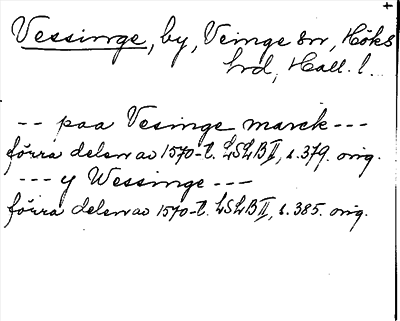 +
Vessinge, by, Veinge sn, Höks
hrd, Hall. l.
-- paa Vesinge marck ---
förra delen av 1570-t. LSLB II, s. 379. orig.
--- y Wessinge ---
förra delen av 1570-t. LSLB II, s. 385. orig.